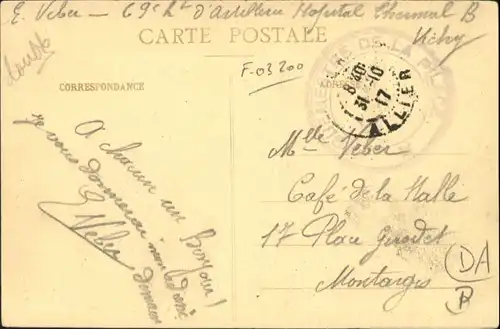 E. Veber - 69e d'Artillerie Hopital Thermal B
Vichy
CARTE POSTALE
double
F-03200
CORRESPONDANCE
8 40
31 -10
17
ALLIER
A chacun un Bonjour!
je vous donnerai mon
E Veber
Mlle Veber
Café de la Halle
17 Place Girodet
Montargis
DA
B